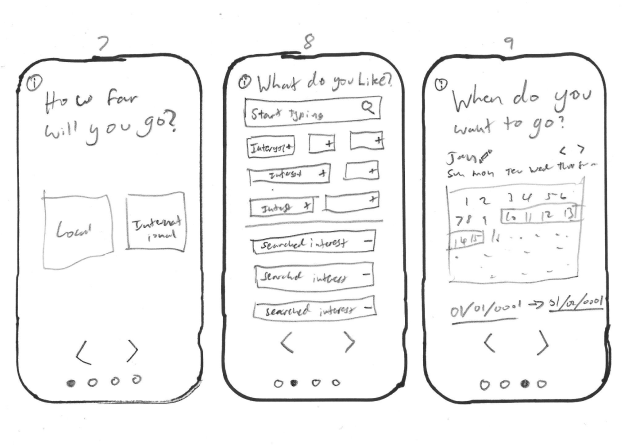 7
i
How far
will you go?
Local
Internat
ional
8
i What do you Like?
Start Typing
Interest +
+
+
Interest +
+
Intrest +
+
Searched interest –
Searched interest –
Searched interest –
9
i
When do you
want to go?
Jan
< >
Sun mon Tue Wed Thur
1 2 3 4 5 6
7 8 9 10 11 12 13
14 15 16
01/01/0001 → 01/02/0001